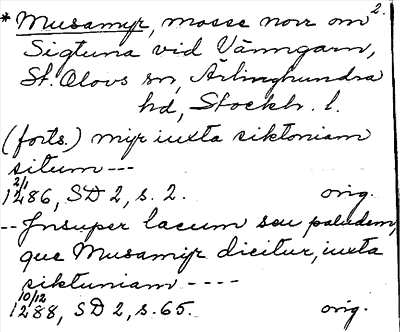 2.
* Musamyr, mosse norr om
Sigtuna vid Vänngarn,
St. Olovs sn, Ärlinghundra
hd, Stockh. l.
(forts.) myr iuxta siktoniam
situm ---
2/1
1286, SD 2, s. 2. orig.
-- Insuper lacum seu paludem,
que Musamyr dicitur, iuxta
siktuniam ----
10/12
1288, SD 2, s. 65. orig.